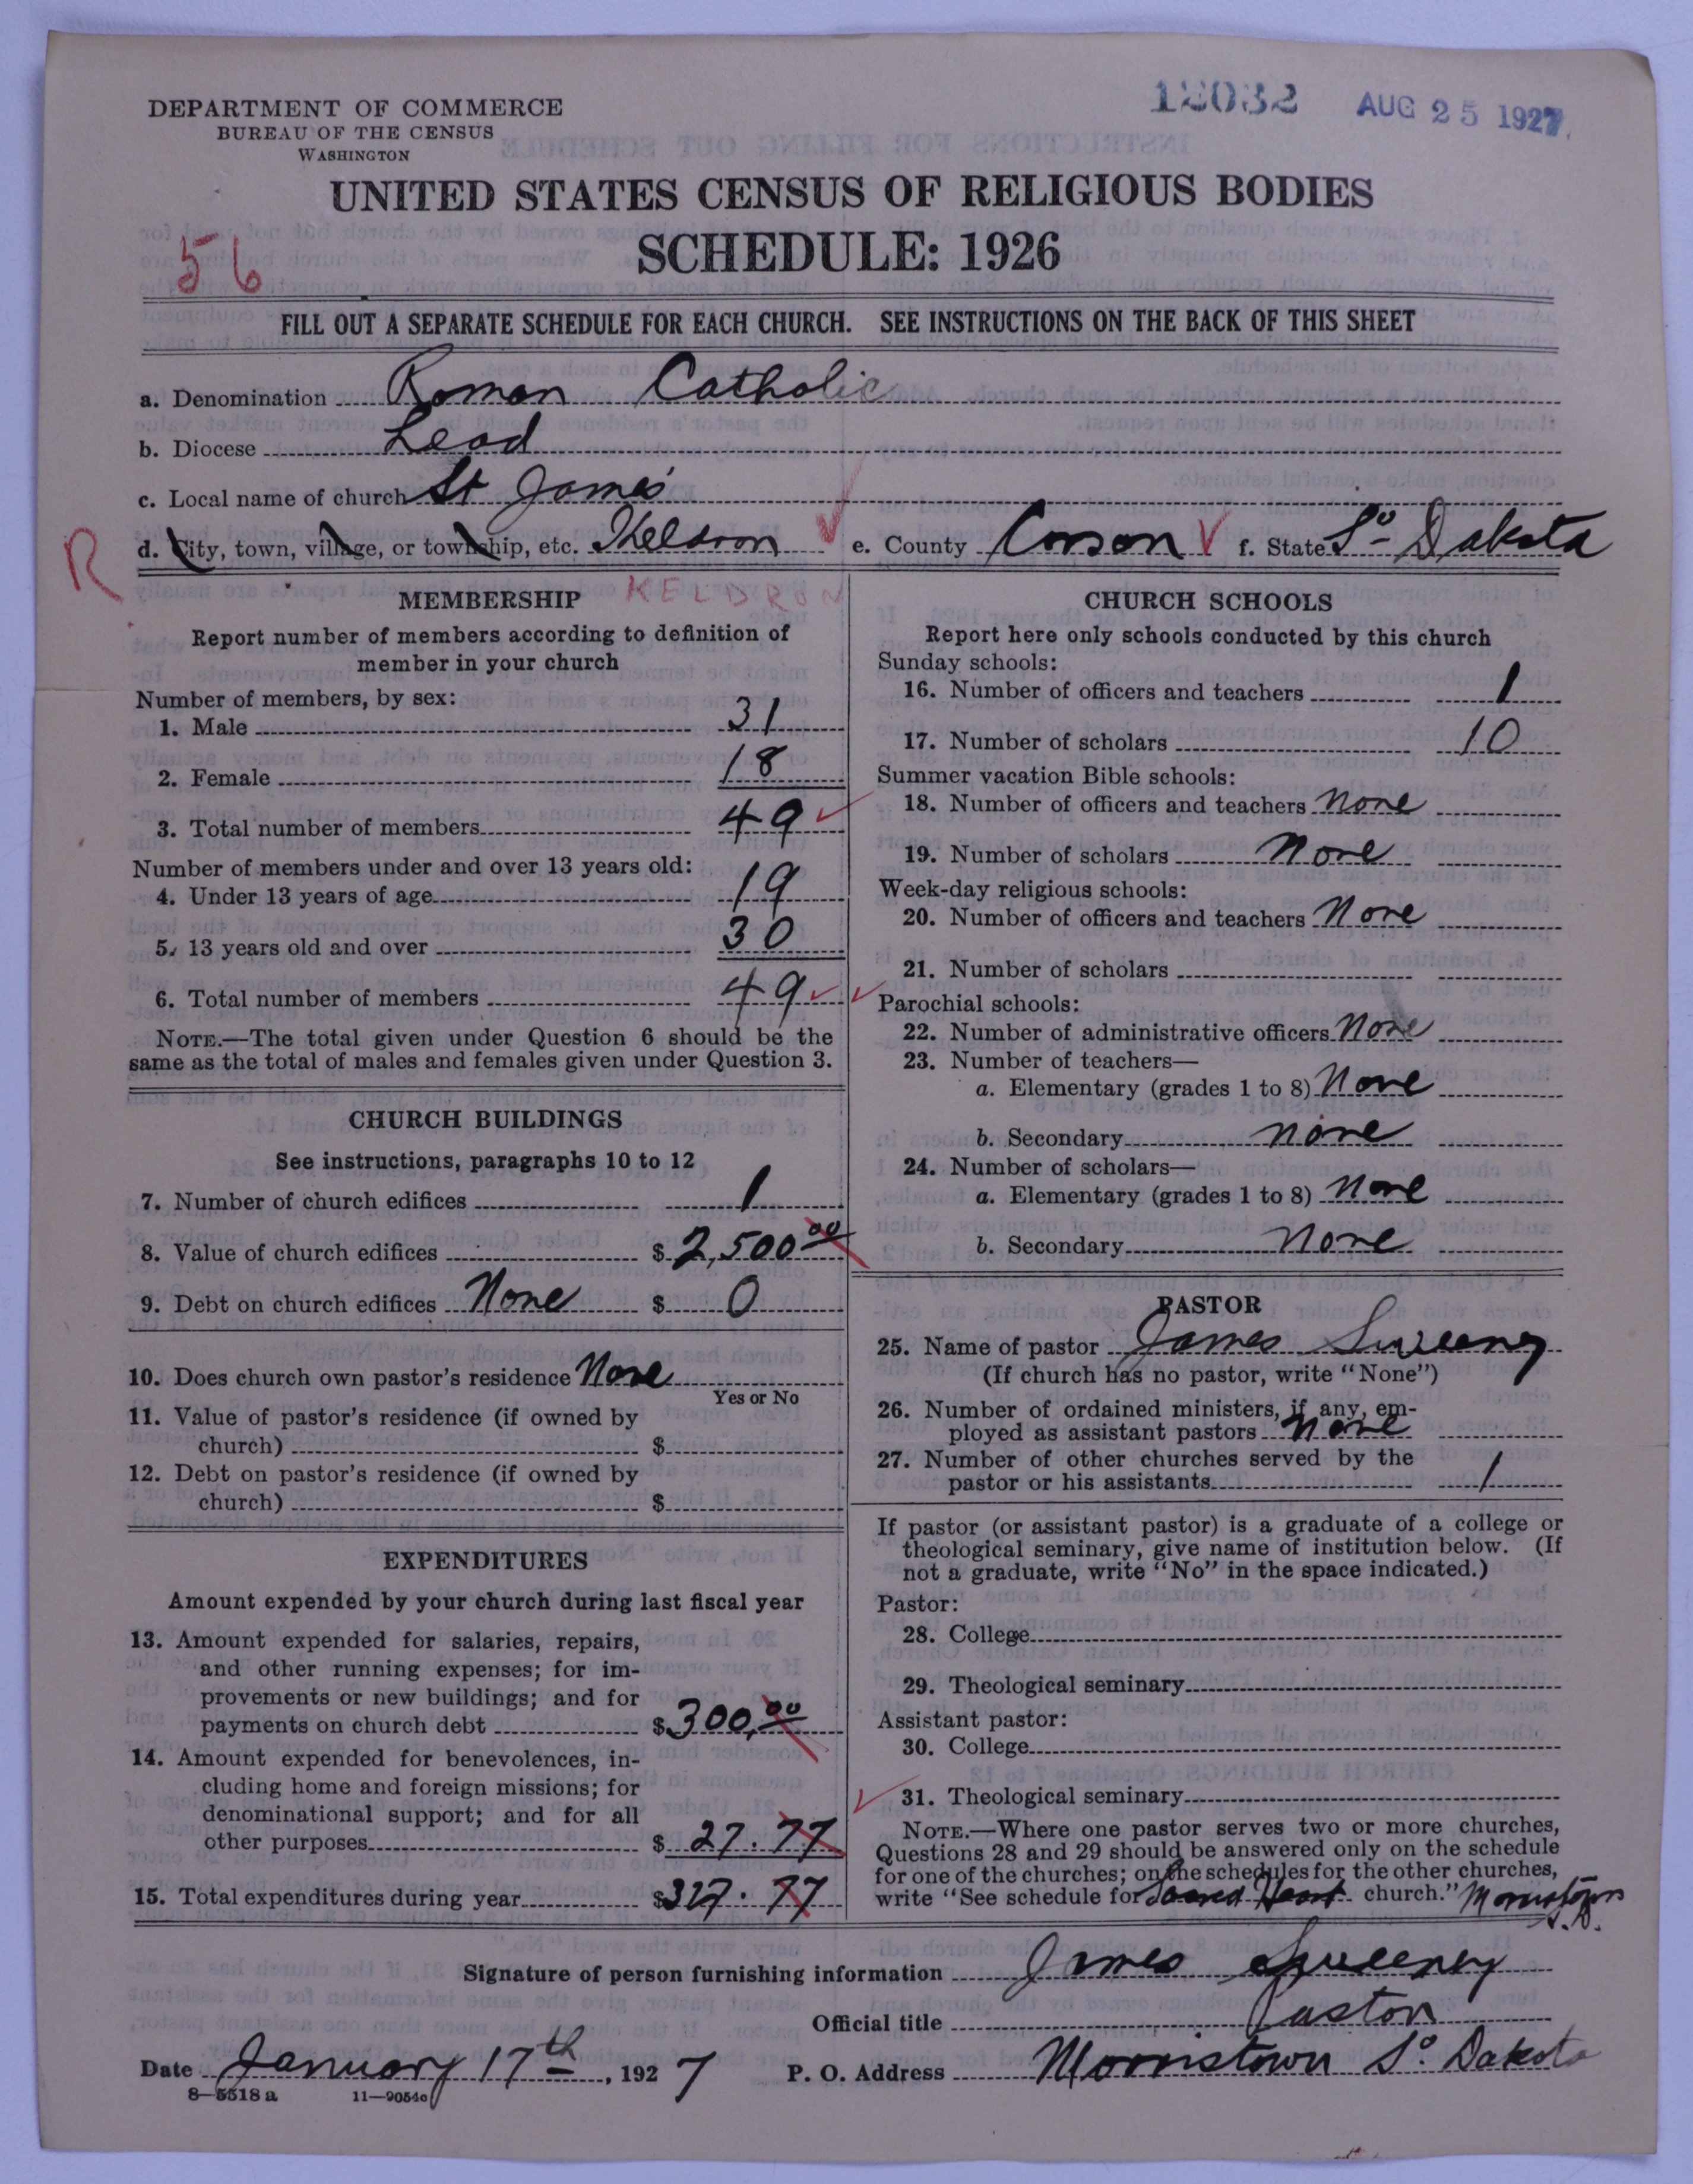 DEPARTMENT OF COMMERCE
BUREAU OF THE CENSUS
WASHINGTON
12032 AUG 25 1927
UNITED STATES CENSUS OF RELIGIOUS BODIES
SCHEDULE: 1926
56
FILL OUT A SEPARATE SCHEDULE FOR EACH CHURCH. SEE INSTRUCTIONS ON THE BACK OF THIS SHEET
a. Denomination Roman Catholic
b. Diocese Lead
c. Local name of church St James'
R d. City, town, village, or township, etc. Keldron e. County Corson f. State So Dakota
KELDRON
MEMBERSHIP
Report number of members according to definition of
member in your church
Number of members, by sex:
1. Male 31
2. Female 18
3. Total number of members 49
Number of members under and over 13 years old:
4. Under 13 years of age 19
5. 13 years old and over 30
6. Total number of members 49
NOTE.—The total given under Question 6 should be the
same as the total of males and females given under Question 3.
CHURCH BUILDINGS
See instructions, paragraphs 10 to 12
7. Number of church edifices 1
8. Value of church edifices $ 2,500 00
9. Debt on church edifices None $ 0
10. Does church own pastor's residence None
Yes or No
11. Value of pastor's residence (if owned by
church) $
12. Debt on pastor's residence (if owned by
church) $
EXPENDITURES
Amount expended by your church during last fiscal year
13. Amount expended for salaries, repairs,
and other running expenses; for im-
provements or new buildings; and for
payments on church debt $ 300.00
14. Amount expended for benevolences, in-
cluding home and foreign missions; for
denominational support; and for all
other purposes $ 27.77
15. Total expenditures during year $ 327.77
CHURCH SCHOOLS
Report here only schools conducted by this church
Sunday schools:
16. Number of officers and teachers 1
17. Number of scholars 10
Summer vacation Bible schools:
18. Number of officers and teachers None
19. Number of scholars None
Week-day religious schools:
20. Number of officers and teachers None
21. Number of scholars
Parochial schools:
22. Number of administrative officers None
23. Number of teachers—
a. Elementary (grades 1 to 8) None
b. Secondary None
24. Number of scholars—
a. Elementary (grades 1 to 8) None
b. Secondary None
PASTOR
25. Name of pastor James Sweeney
(If church has no pastor, write "None")
26. Number of ordained ministers, if any, em-
ployed as assistant pastors None
27. Number of other churches served by the
pastor or his assistants 1
If pastor (or assistant pastor) is a graduate of a college or
theological seminary, give name of institution below. (If
not a graduate, write "No" in the space indicated.)
Pastor:
28. College
29. Theological seminary
Assistant pastor:
30. College
31. Theological seminary
NOTE.—Where one pastor serves two or more churches,
Questions 28 and 29 should be answered only on the schedule
for one of the churches; on the schedules for the other churches,
write "See schedule for Sacred Heart church." Morristown
S.D.
Signature of person furnishing information James Sweeney
Official title Pastor
Date January 17th, 1927 P. O. Address Morristown So. Dakota
8—5518 a 11—9054c